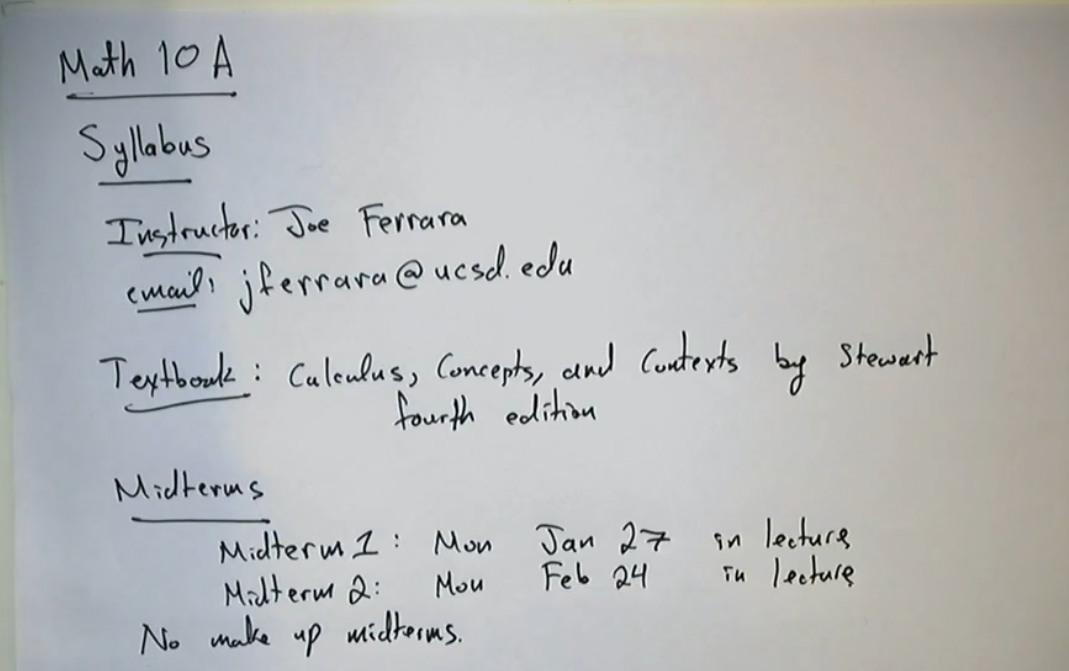 Math 10 A
Syllabus
Instructor: Joe Ferrara
email: jferrara@ucsd.edu
Textbook: Calculus, Concepts, and Contexts by Stewart
fourth edition
Midterms
Midterm 1: Mon Jan 27 in lecture
Midterm 2: Mon Feb 24 in lecture
No make up midterms.